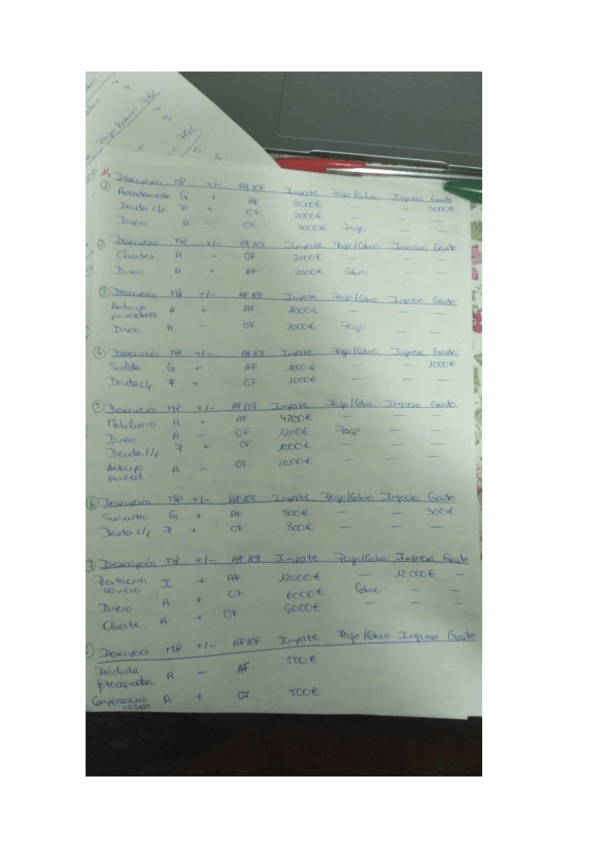 Pago/Cobro PGC
PGC
1) Descripción MP +/- AF/CF Importe Pago/Cobro Ingreso Gasto
Arrendamiento G + AF 3000€ — — 3000€
Deuda c/p P + CF 2000€ — — —
Dinero A — CF 1000€ Pago — —
2) Descripción MP +/- AF/CF Importe Pago/Cobro Ingreso Gasto
Clientes A — CF 2000€ — — —
Dinero A + AF 2000€ Cobro — —
3) Descripción MP +/- AF/CF Importe Pago/Cobro Ingreso Gasto
Anticipo A + AF 2000€ — — —
proveedores
Dinero A — CF 2000€ Pago — —
4) Descripción MP +/- AF/CF Importe Pago/Cobro Ingreso Gasto
Sueldo G + AF 1000€ — — 1000€
Deuda c/p P + CF 1000€ — — —
5) Descripción MP +/- AF/CF Importe Pago/Cobro Ingreso Gasto
Mobiliario A + AF 4200€ — — —
Dinero A — CF 1200€ Pago — —
Deuda l/p P + CF 1000€ — — —
Anticipo A — CF 2000€ — — —
proveed
6) Descripción MP +/- AF/CF Importe Pago/Cobro Ingreso Gasto
Suministro G + AF 300€ — — 300€
Deuda c/p P + CF 300€ — — —
7) Descripción MP +/- AF/CF Importe Pago/Cobro Ingreso Gasto
Prestación I + AF 12000€ — 12000€ —
servicio
Dinero A + CF 6000€ Cobro — —
Cliente A + CF 6000€ — — —
Descripción MP +/- AF/CF Importe Pago/Cobro Ingreso Gasto
Pérdida A — AF 500€
fotocopiadora
A + CF 500€